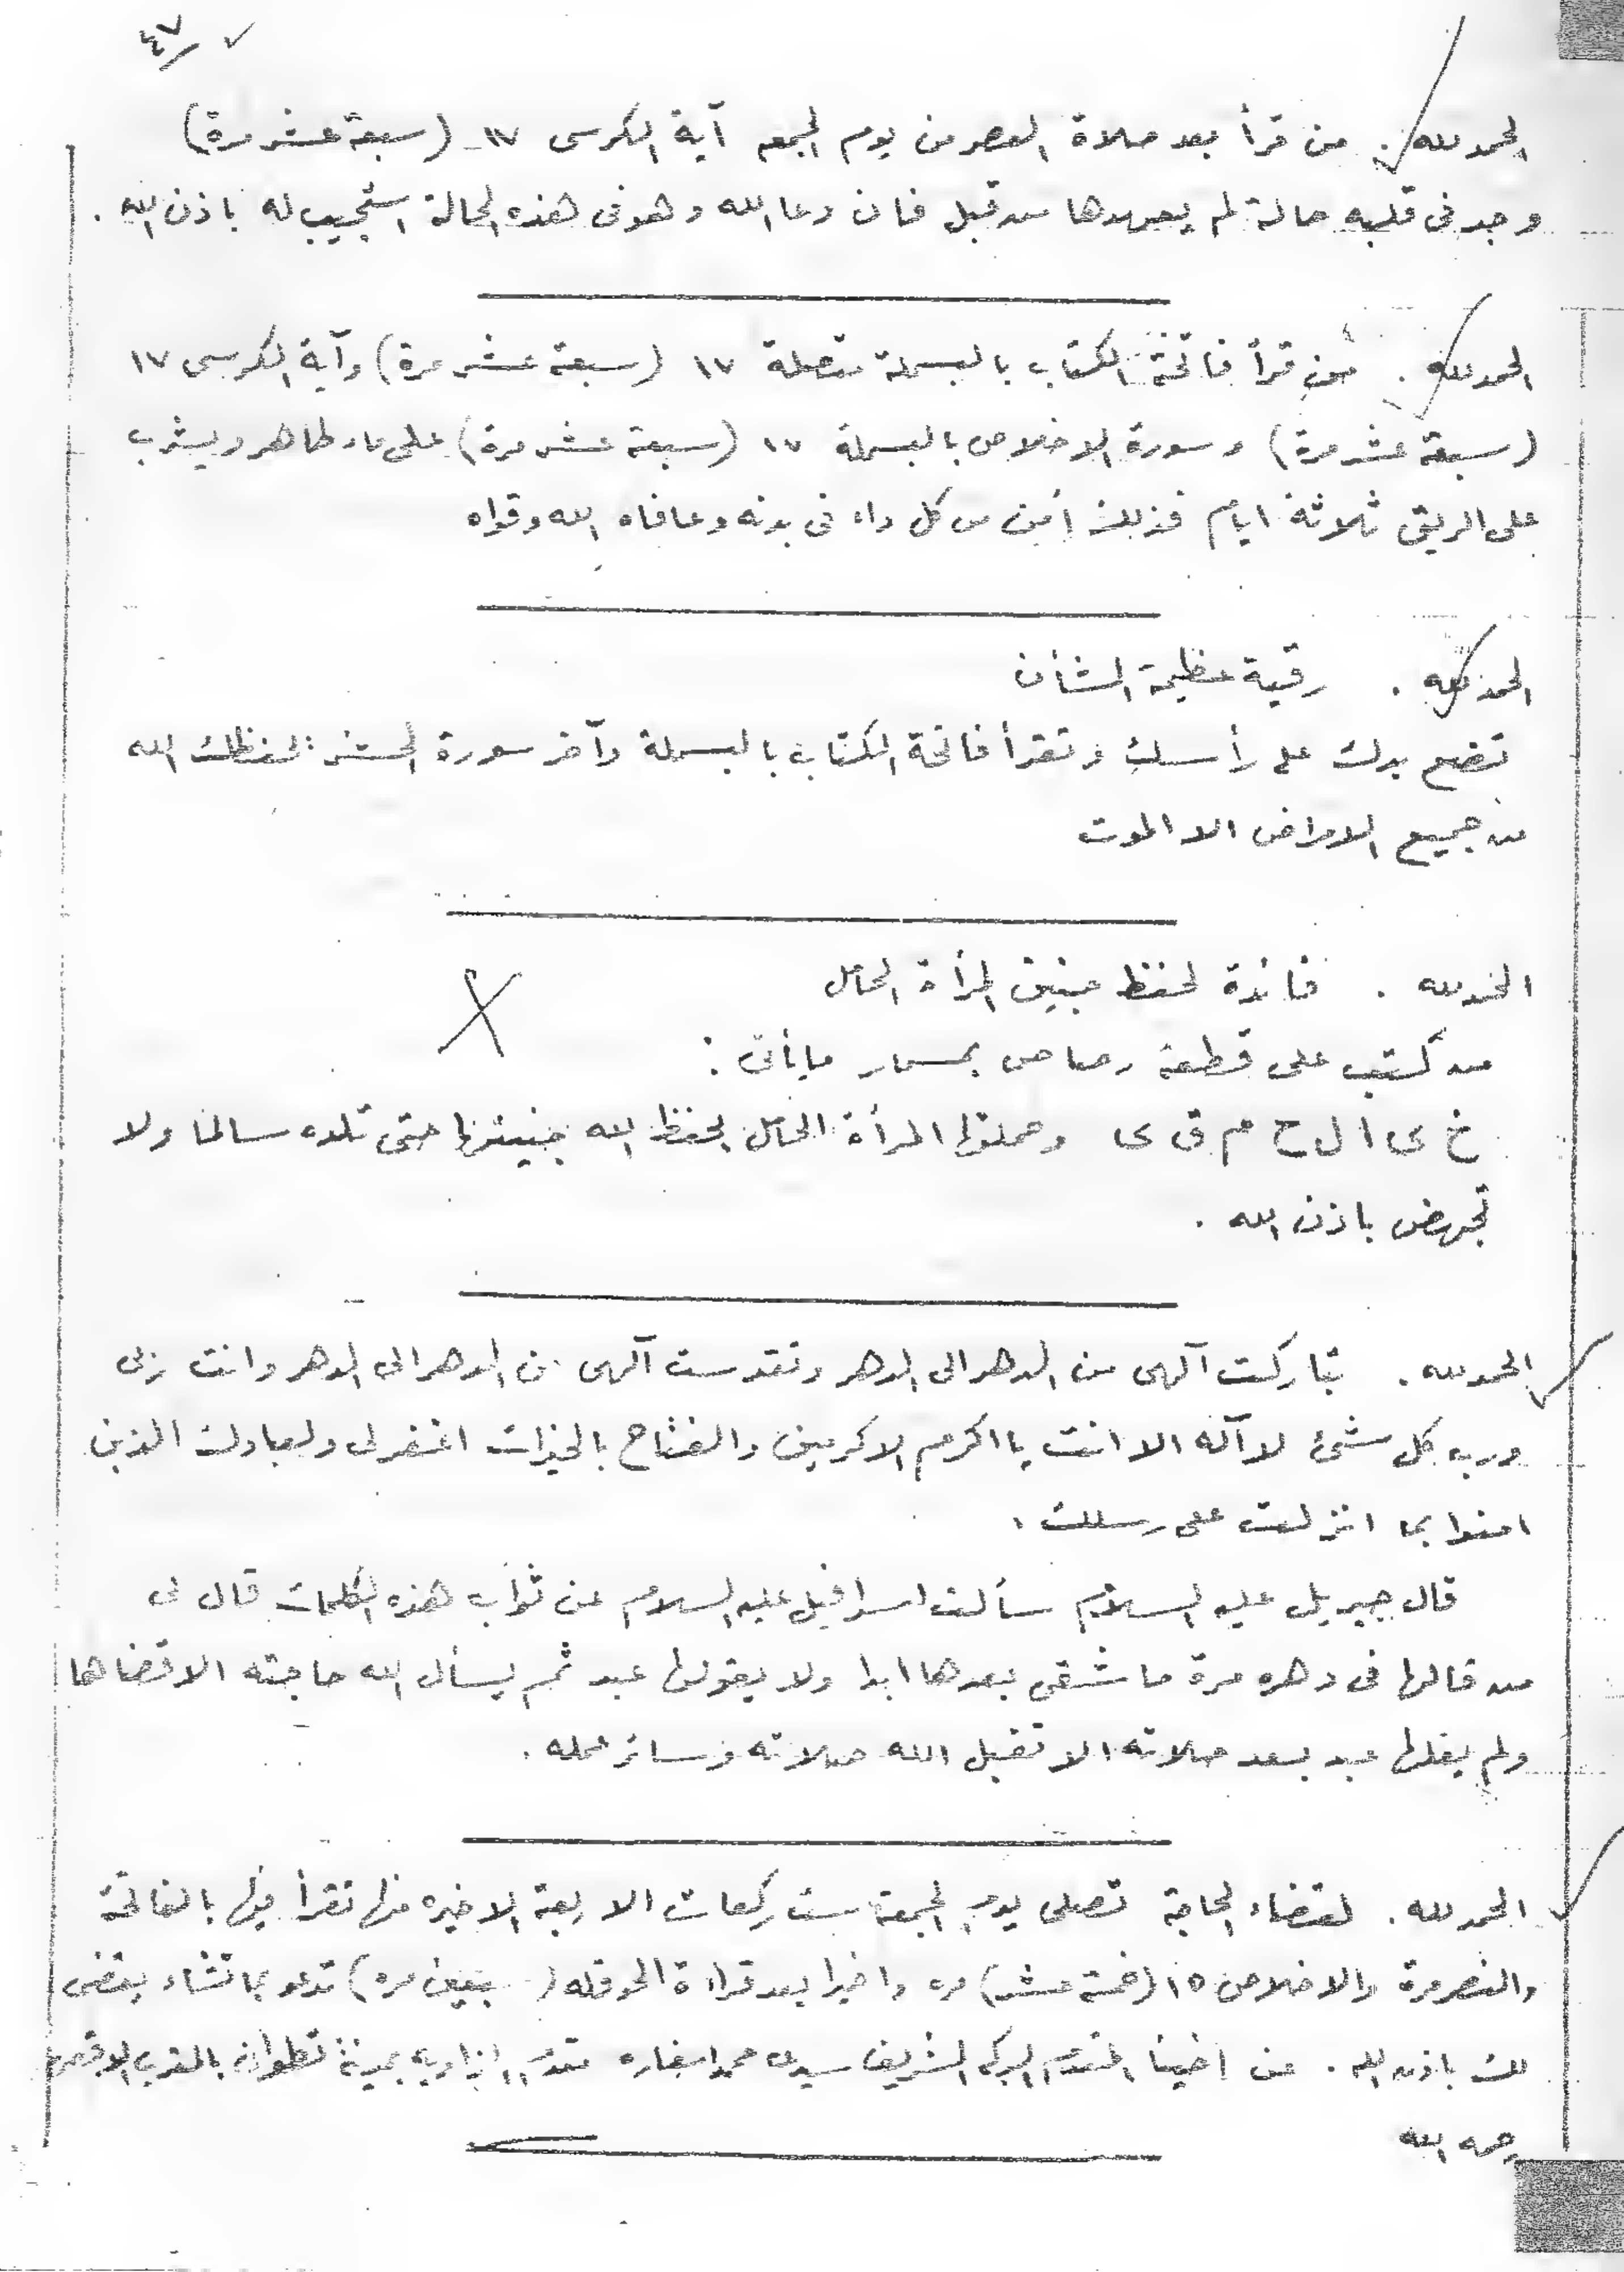 ٤٧
الحمد لله . من قرأ بعد صلاة العصر من يوم الجمعه آية الكرسى ١٧ (سبعة عشر مرة)
وجد فى قلبه حالة لم يعهدها من قبل فان دعا الله وهو فى هذه الحالة استجيب له باذن الله .
الحمد لله . من قرأ فاتحة الكتاب بالبسملة متصلة ١٧ (سبعة عشر مرة) وآية الكرسى ١٧
(سبعة عشر مرة) وسورة الاخلاص بالبسملة ١٧ (سبعة عشر مرة) على ماء طاهر ويشرب
على الريق ثلاثة ايام فذلك أمن من كل داء فى بدنه وعافاه الله وقواه
الحمد لله . رقية عظيمة الشأن
تضع يدك على رأسك وتقرأ فاتحة الكتاب بالبسملة وآخر سورة الحشر يحفظك الله
من جميع الامراض الا الموت
الحمد لله . فائدة لحفظ جنين المرأة الحامل
من كتب على قطعة رصاص بمسمار ما يأتى :
خ ى ا ل ح م ق ى وحملتها المرأة الحامل يحفظ الله جنينها حتى تلده سالما ولا
تجهض باذن الله .
الحمد لله . تباركت آلهى من الدهر الى الدهر وتقدست آلهى من الدهر الى الدهر وانت ربى
ورب كل شئ لا آله الا انت يا اكرم الاكرمين والفتاح بالخيرات اغفر لى ولعبادك الذين
امنوا بما انزلت على رسلك .
قال جبريل عليه السلام سألت اسرافيل عليه السلام عن ثواب هذه الكلمات قال لى
من قالها فى دهره مرة ما شقى بعدها ابدا ولا يقولها عبد ثم يسأل الله حاجته الا قضاها
ولم يقلها عبد بعد صلاته الا تقبل الله صلاته وسائر عمله .
الحمد لله . لقضاء الحاجة تصلى يوم الجمعة ست ركعات الاربعة الاخيره منها تقرأ فيها بالفاتحة
والنصر مرة والاخلاص ١٥ (خمسة عشر) مره واخيرا بعد قراءة الحوقله ( مره) تدعو بما تشاء يقضى
لك باذن الله . عن اخينا المقدم البركه الشريف سيدى محمد مقدم الزاويه بمدينة تطوان بالمغرب الاقصى
رحمه الله